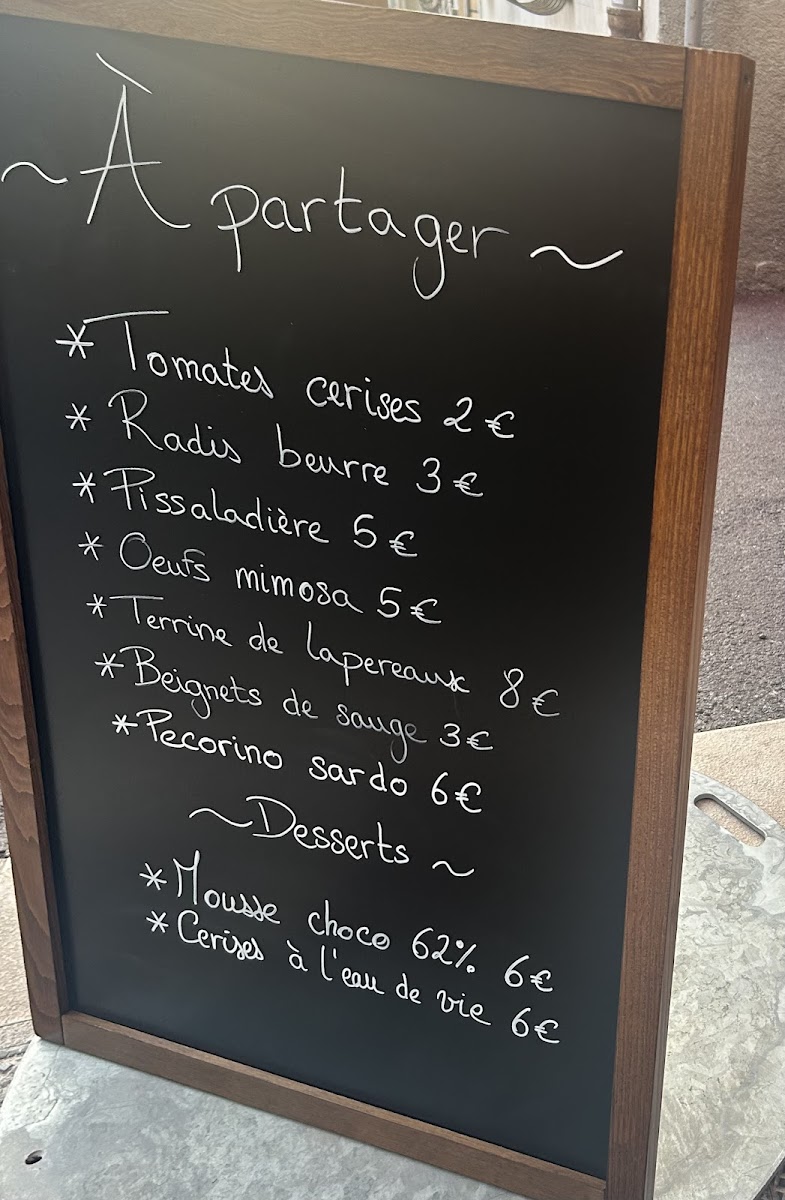 ~ À partager ~
* Tomates cerises 2€
* Radis beurre 3€
* Pissaladière 5€
* Oeufs mimosa 5€
* Terrine de lapereaux 8€
* Beignets de sauge 3€
* Pecorino sardo 6€
~ Desserts ~
* Mousse choco 62% 6€
* Cerises à l'eau de vie 6€